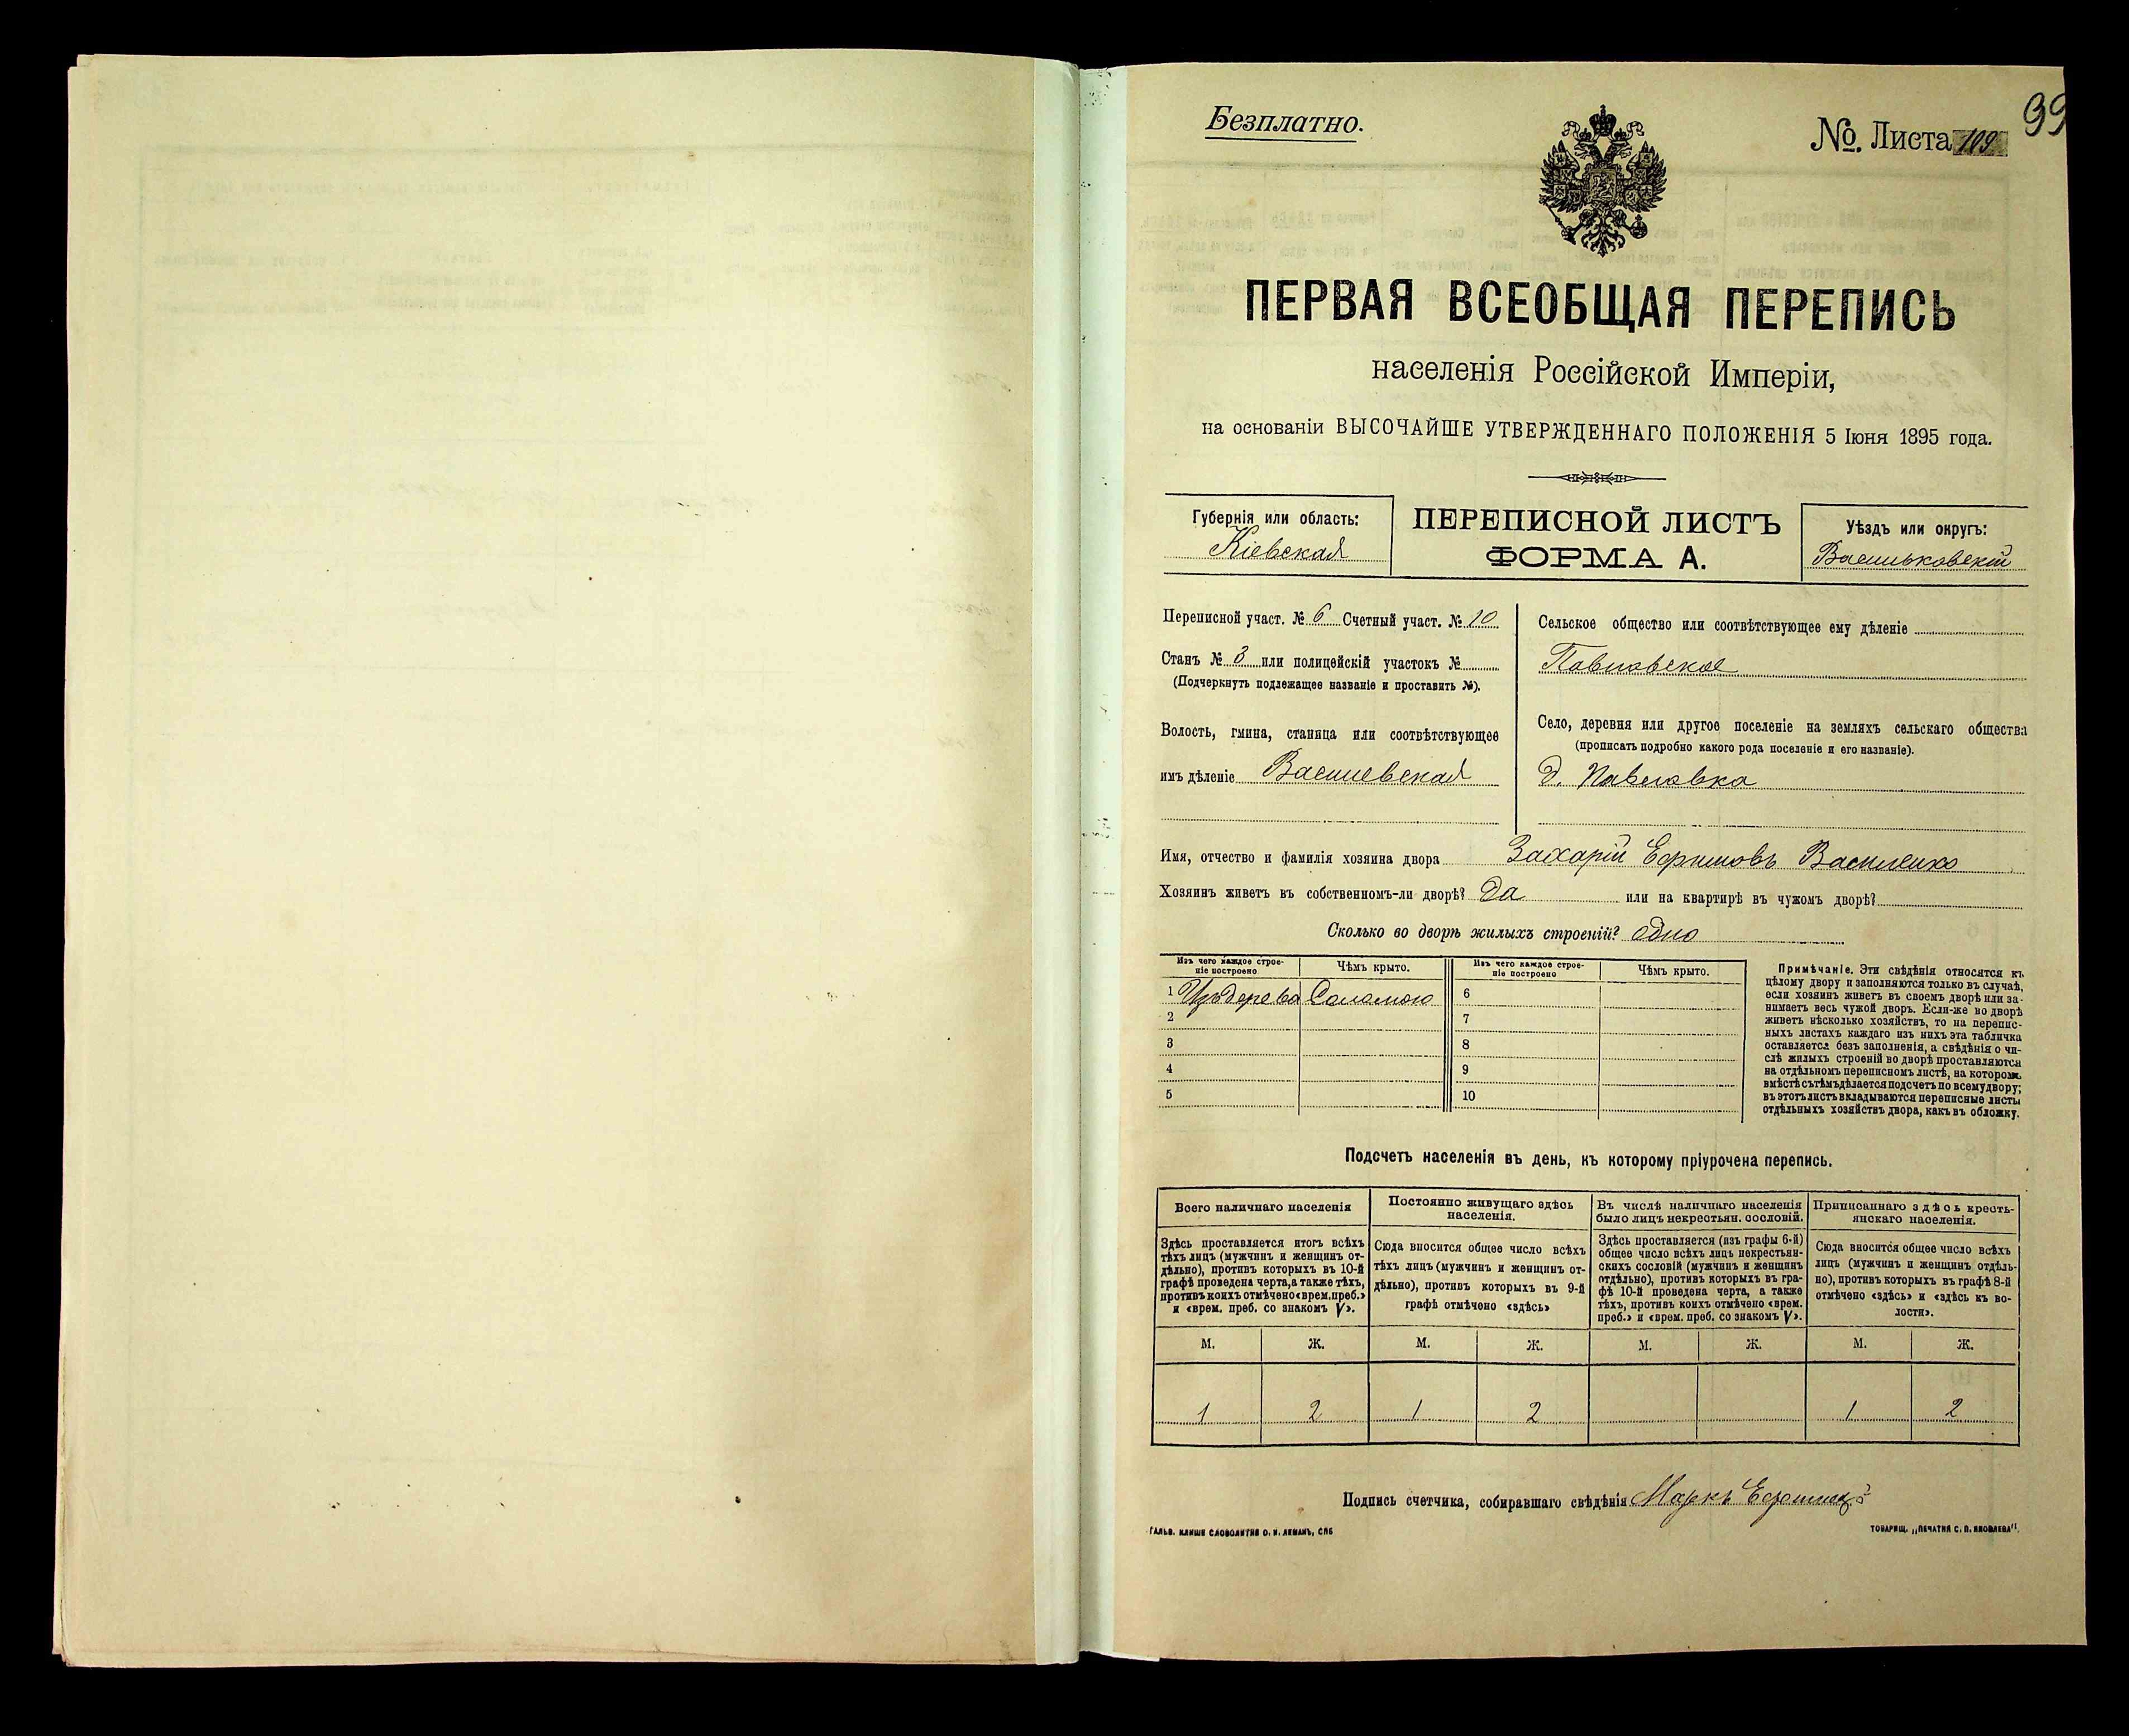 Безплатно.
№. Листа 109
99
ПЕРВАЯ ВСЕОБЩАЯ ПЕРЕПИСЬ
населенія Россійской Имперіи,
на основаніи ВЫСОЧАЙШЕ УТВЕРЖДЕННАГО ПОЛОЖЕНІЯ 5 Іюня 1895 года.
Губернія или область:
Кіевская
ПЕРЕПИСНОЙ ЛИСТЪ
ФОРМА А.
Уѣздъ или округъ:
Васильковскій
Переписной участ. № 6 Счетный участ. № 10
Станъ № 3 или полицейскій участокъ №
(Подчеркнуть подлежащее названіе и проставить №).
Волость, гмина, станица или соотвѣтствующее
имъ дѣленіе Василевская
Сельское общество или соотвѣтствующее ему дѣленіе
Павловское
Село, деревня или другое поселеніе на земляхъ сельскаго общества
(прописать подробно какого рода поселеніе и его названіе).
д. Павловка
Имя, отчество и фамилія хозяина двора Захарій Ефимовъ Василенко
Хозяинъ живетъ въ собственномъ-ли дворѣ? Да или на квартирѣ въ чужомъ дворѣ?
Сколько во дворѣ жилыхъ строеній? одно
Изъ чего каждое строе-
ніе построено
Чѣмъ крыто.
Изъ чего каждое строе-
ніе построено
Чѣмъ крыто.
1 Изъ дерева Соломою 6
2 7
3 8
4 9
5 10
Примѣчаніе. Эти свѣдѣнія относятся къ
цѣлому двору и заполняются только въ случаѣ,
если хозяинъ живетъ въ своемъ дворѣ или за-
нимаетъ весь чужой дворъ. Если-же во дворѣ
живетъ нѣсколько хозяйствъ, то на перепис-
ныхъ листахъ каждаго изъ нихъ эта табличка
оставляется безъ заполненія, а свѣдѣнія о чи-
слѣ жилыхъ строеній во дворѣ проставляются
на отдѣльномъ переписномъ листѣ, на которомъ
вмѣстѣ съ тѣмъ дѣлается подсчетъ по всему двору;
въ этотъ листъ вкладываются переписные листы
отдѣльныхъ хозяйствъ двора, какъ въ обложку.
Подсчетъ населенія въ день, къ которому пріурочена перепись.
Всего наличнаго населенія
Здѣсь проставляется итогъ всѣхъ
тѣхъ лицъ (мужчинъ и женщинъ от-
дѣльно), противъ которыхъ въ 10-й
графѣ проведена черта, а также тѣхъ,
противъ коихъ отмѣчено «врем. преб.»
и «врем. преб. со знакомъ V».
Постоянно живущаго здѣсь
населенія.
Сюда вносится общее число всѣхъ
тѣхъ лицъ (мужчинъ и женщинъ от-
дѣльно), противъ которыхъ въ 9-й
графѣ отмѣчено «здѣсь»
Въ числѣ наличнаго населенія
было лицъ некрестьян. сословій.
Здѣсь проставляется (изъ графы 6-й)
общее число всѣхъ лицъ некрестьян-
скихъ сословій (мужчинъ и женщинъ
отдѣльно), противъ которыхъ въ гра-
фѣ 10-й проведена черта, а также
тѣхъ, противъ коихъ отмѣчено «врем.
преб.» и «врем. преб. со знакомъ V».
Приписаннаго здѣсь кресть-
янскаго населенія.
Сюда вносится общее число всѣхъ
лицъ (мужчинъ и женщинъ отдѣль-
но), противъ которыхъ въ графѣ 8-й
отмѣчено «здѣсь» и «здѣсь къ во-
лости».
М. Ж. М. Ж. М. Ж. М. Ж.
1 2 1 2 1 2
Подпись счетчика, собиравшаго свѣдѣнія Маркъ
ГАЛЬВ. КЛИШЕ СЛОВОЛИТНИ О. И. ЛЕМАНЪ, СПБ
ТОВАРИЩ. „ПЕЧАТНЯ С. П. ЯКОВЛЕВА".